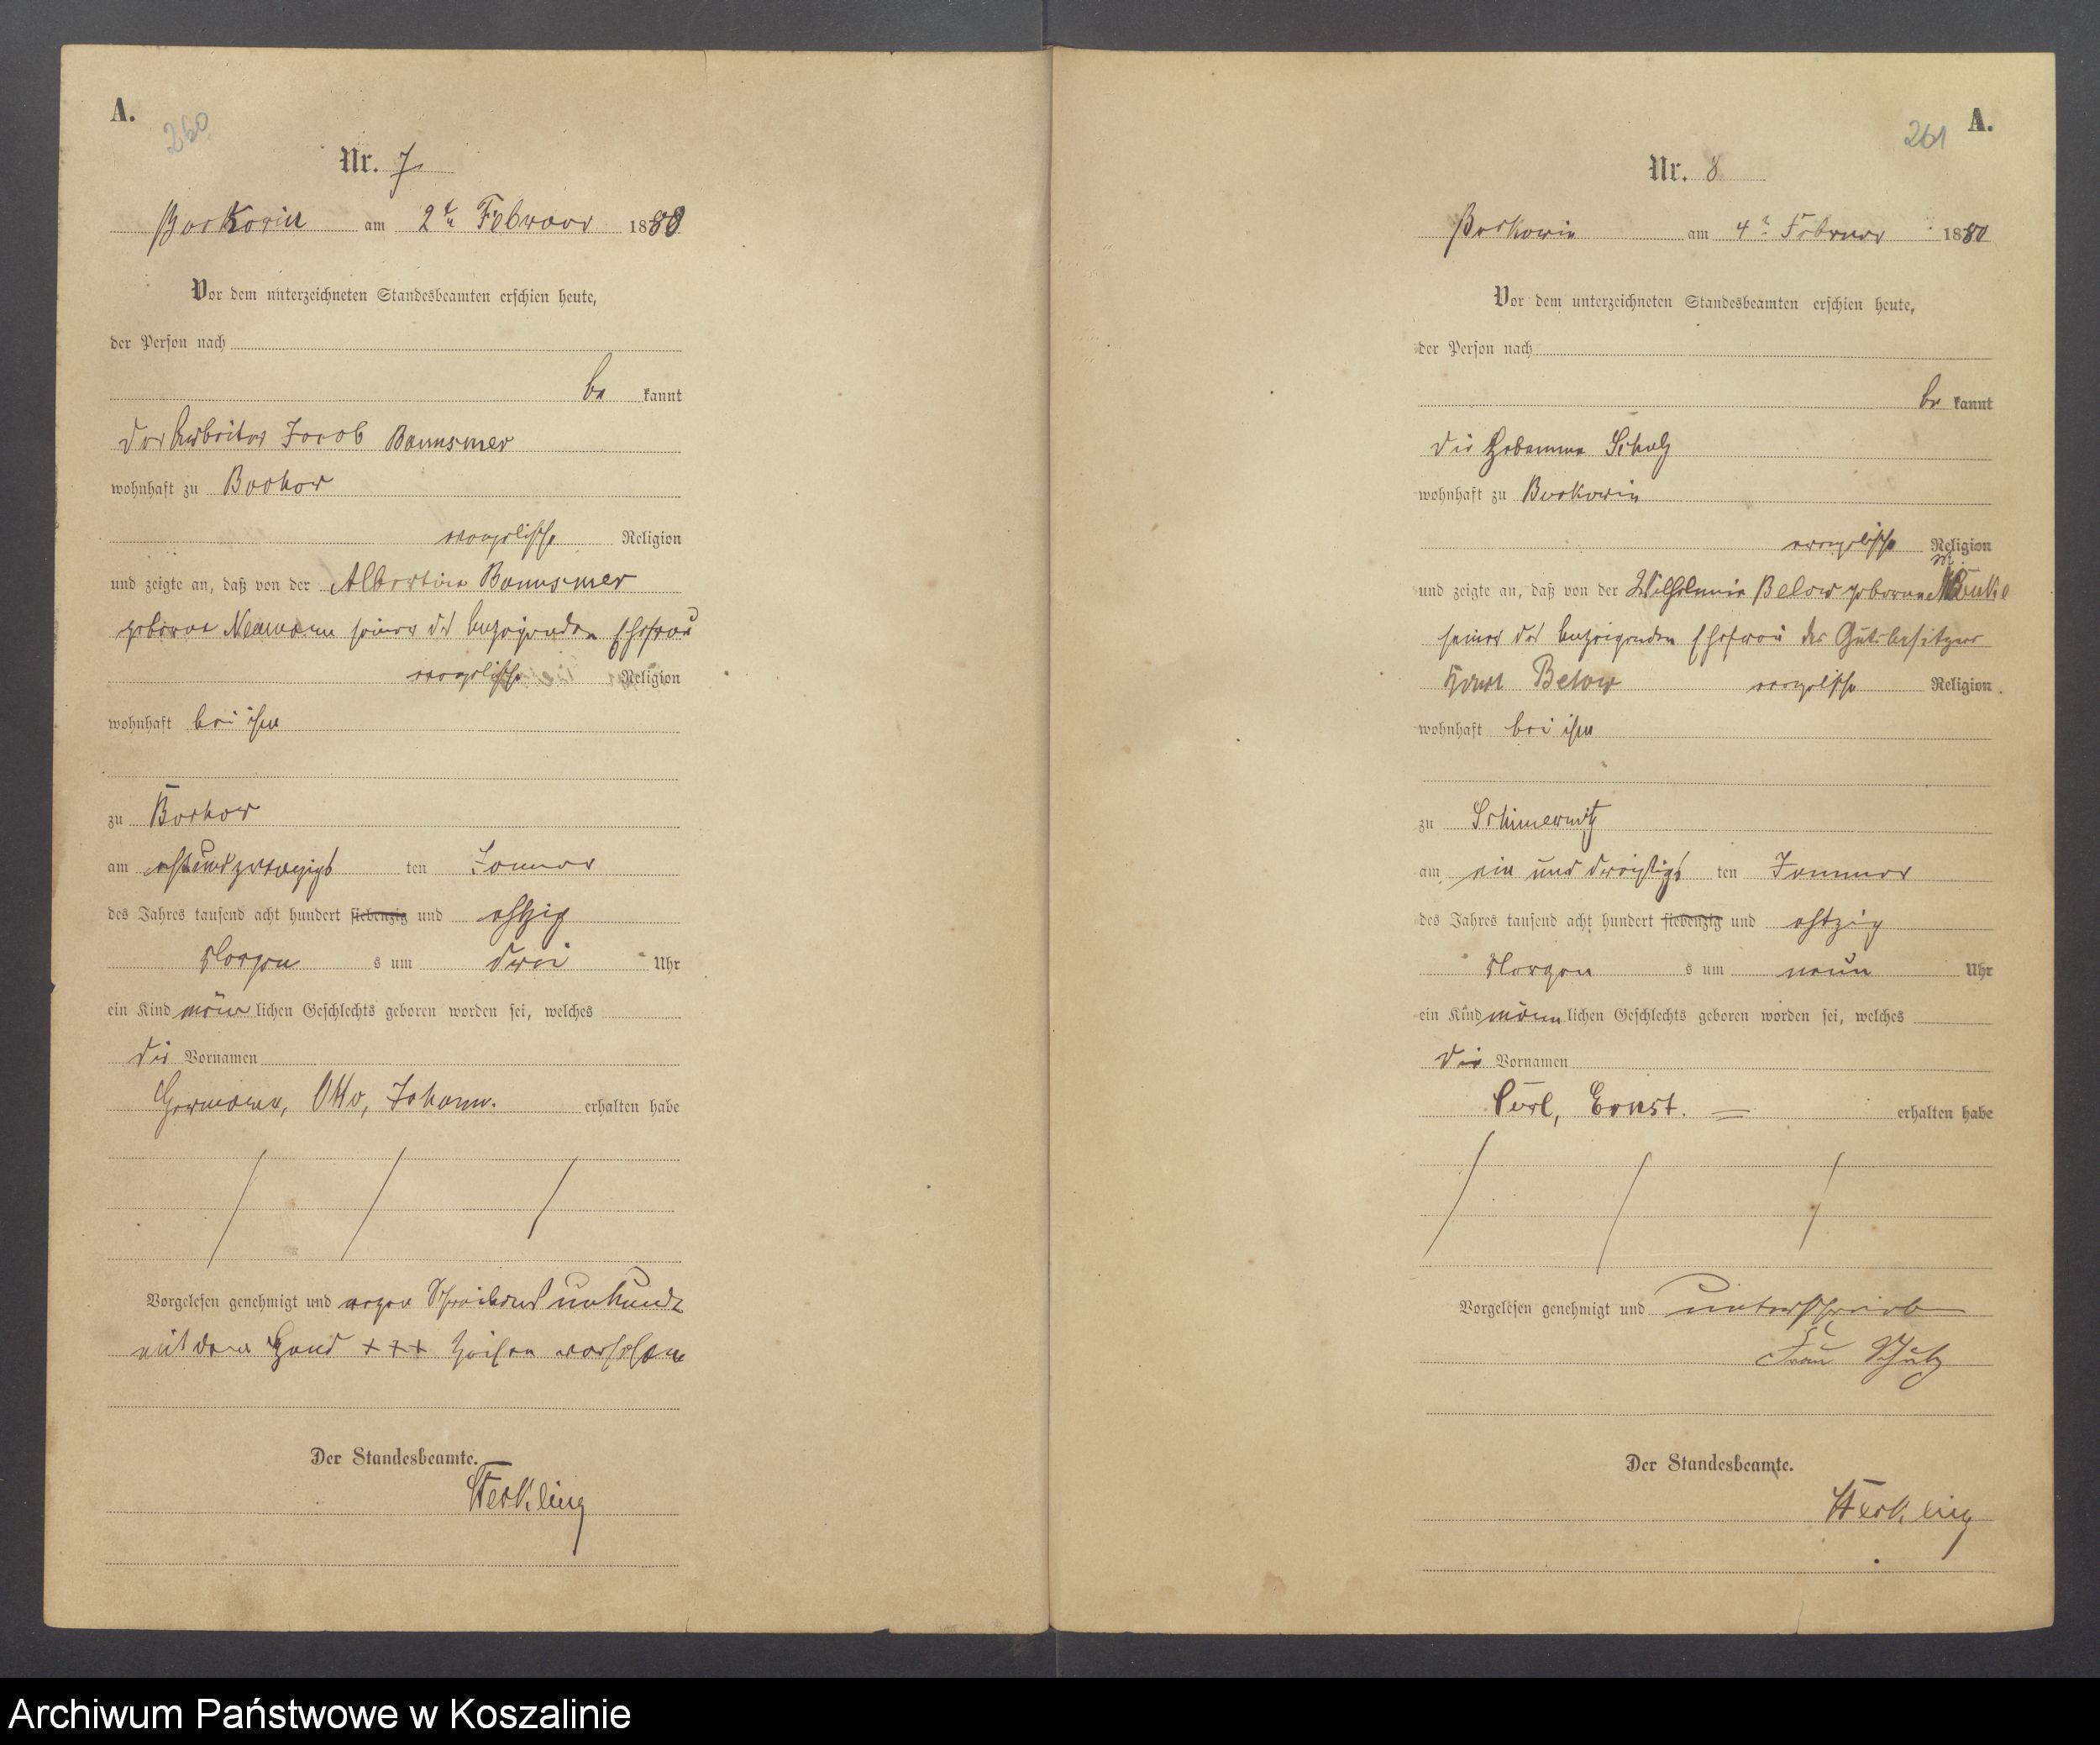 A.
260
Nr. 7
Borkowin am 2t. Februar 1880
Vor dem unterzeichneten Standesbeamten erschien heute,
der Person nach
be kannt
der Arbeiter Jacob
wohnhaft zu Borkow
evangelische Religion
und zeigte an, daß von der Albertine
geborne Neumann seiner des Anzeigenden Ehefrau
evangelische Religion
wohnhaft bei ihm
zu Borkow
am achtundzwanzigst ten Januar
des Jahres tausend acht hundert siebenzig und achtzig
Morgen s um drei Uhr
ein Kind männ lichen Geschlechts geboren worden sei, welches
die Vornamen
Hermann, Otto, Johann. erhalten habe
Vorgelesen genehmigt und wegen Schreibens unkunde
mit dem Hand +++ Zeichen versehen
Der Standesbeamte.
A.
261
Nr. 8
Borkowin am 4t. Februar 1880
Vor dem unterzeichneten Standesbeamten erschien heute,
der Person nach
be kannt
die Hebamme Schulz
wohnhaft zu Borkowin
evangelische Religion
und zeigte an, daß von der Wilhelmine Below geborene
seiner des Anzeigenden Ehefrau des Gutsbesitzers
Below evangelische Religion
wohnhaft bei ihm
zu Schimerwitz
am ein und dreißigst ten Januar
des Jahres tausend acht hundert siebenzig und achtzig
Morgen s um neun Uhr
ein Kind männ lichen Geschlechts geboren worden sei, welches
die Vornamen
Carl, Ernst. erhalten habe
Vorgelesen genehmigt und unterschrieben
Frau Schulz
Der Standesbeamte.
Archiwum Państwowe w Koszalinie